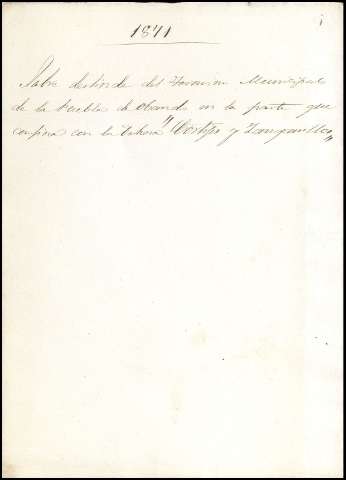 1871
Sobre deslinde del Termino Municipal
de la Puebla de Obando en la parte que
confina con la Dehesa "Cortijo y Zampanillas"